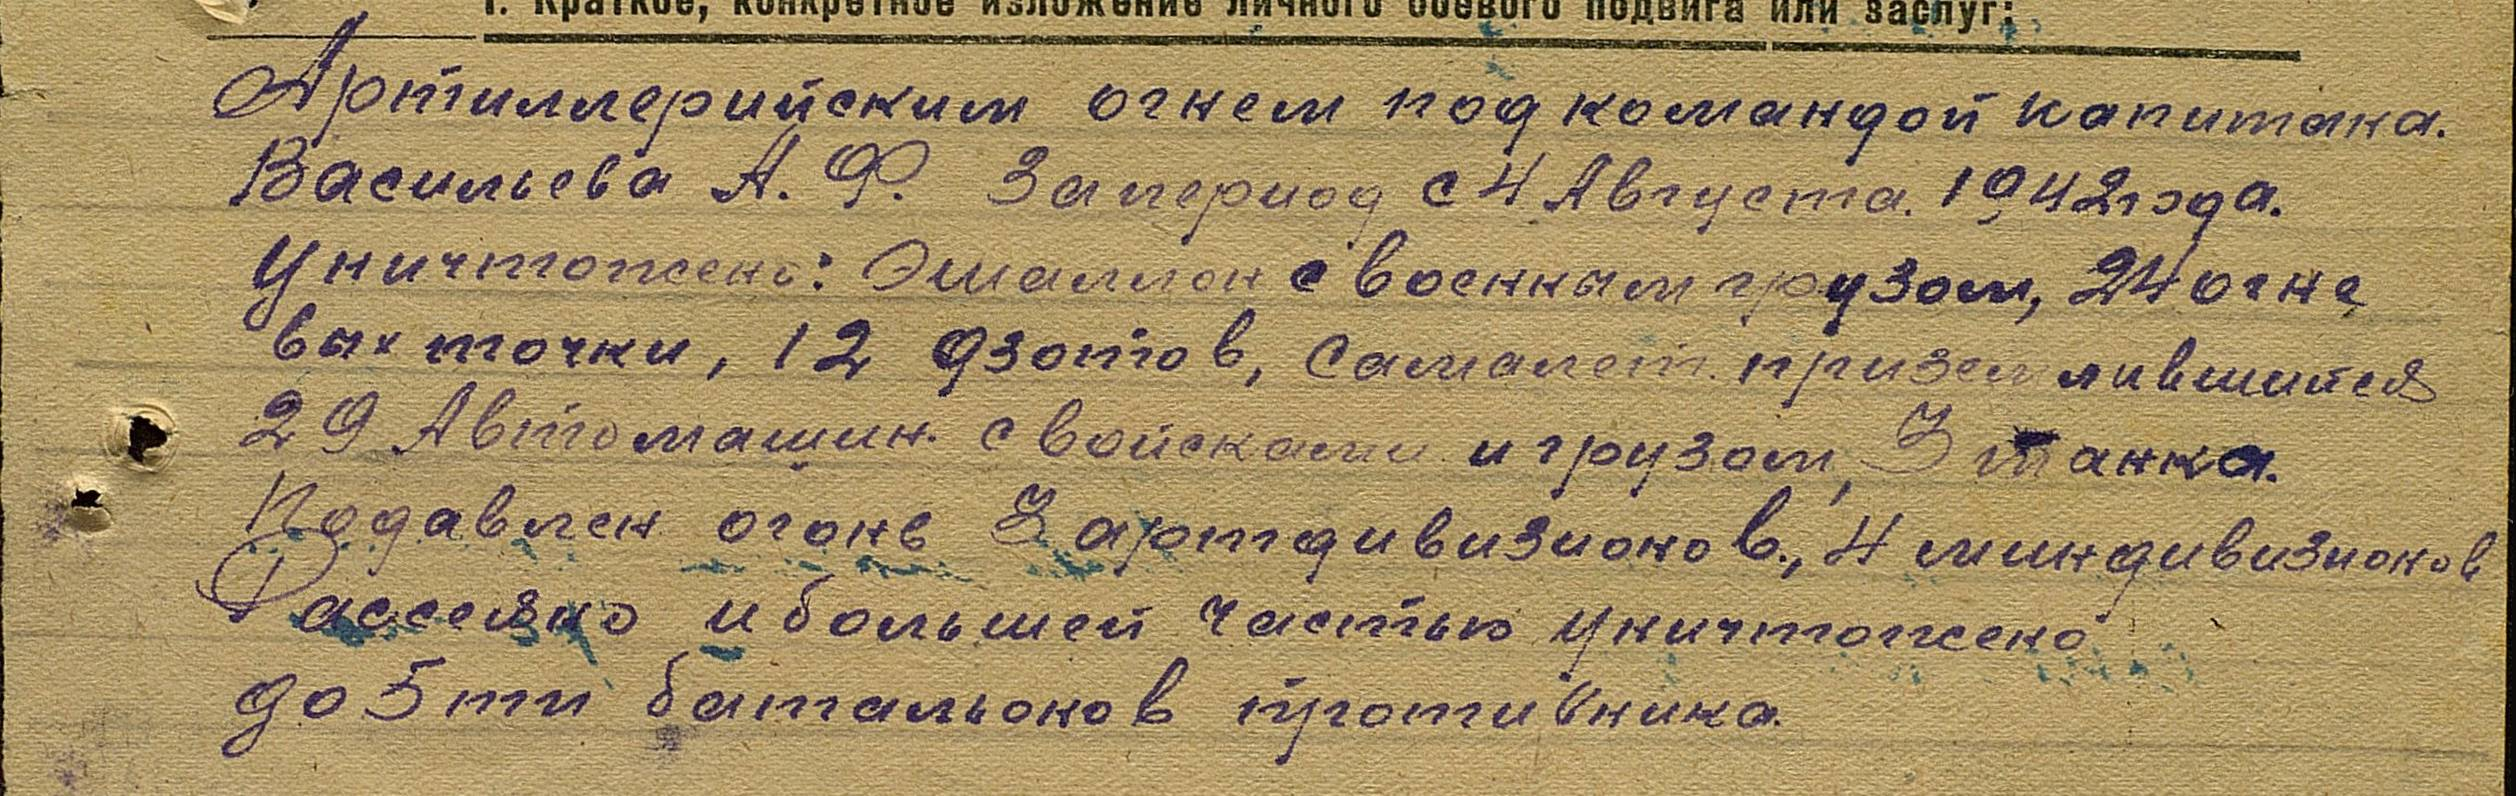 1. Краткое, конкретное изложение личного боевого подвига или заслуг:
Артиллерийским огнем под командой капитана.
Васильева А. Ф. За период с 4 Августа 1942 года.
Уничтожено: Эшаллон с военным грузом, 24 огне
вых точки, 12 дзотов, Самалет приземлившийся
29 Автомашин с войсками и грузом, 3 танка.
Подавлен огонь 3 артдивизионов, 4 миндивизионов
Рассеяно и большей частью уничтожено
до 5ти батальонов противника.